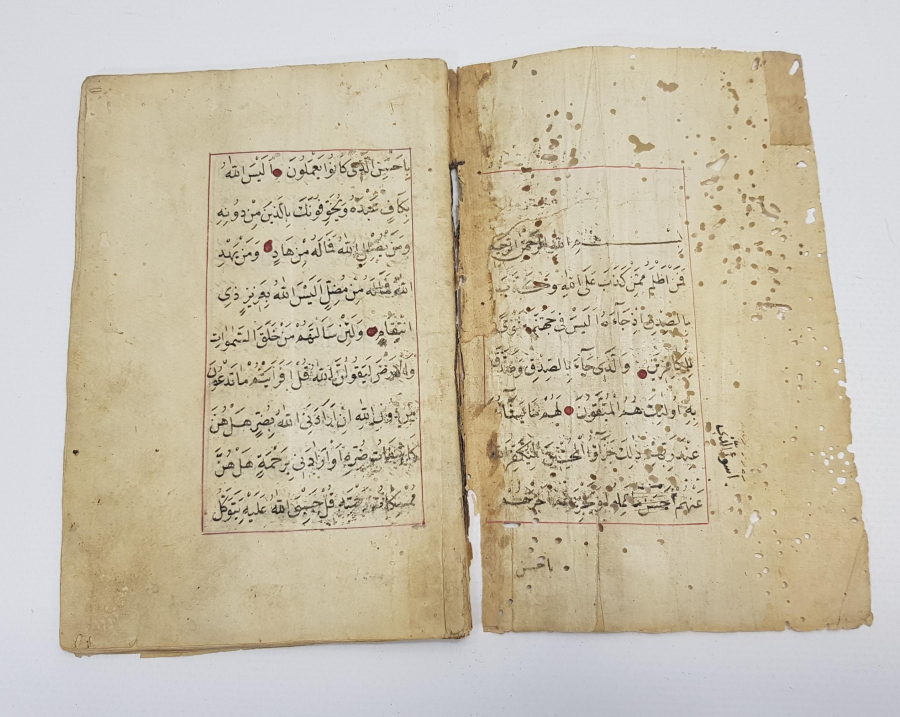 بسم الله الرحمن الرحيم
فَمَنْ اَظْلَمُ مِمَّنْ كَذَبَ عَلَى اللهِ وَكَذَّبَ
بِالصِّدْقِ اِذْ جَآءَهُ اَلَيْسَ فِي جَهَنَّمَ مَثْوًى
لِلْكَافِرِينَ وَالَّذِي جَآءَ بِالصِّدْقِ وَصَدَّقَ
بِهِ اُولٰئِكَ هُمُ الْمُتَّقُونَ لَهُمْ مَا يَشَآؤُنَ
عِنْدَ رَبِّهِمْ ذٰلِكَ جَزَآؤُ الْمُحْسِنِينَ لِيُكَفِّرَ اللهُ
عَنْهُمْ وَيَجْزِيَهُمْ اَجْرَهُمْ
اسوء الذي
باحسن
بِاَحْسَنِ الَّذِي كَانُوا يَعْمَلُونَ اَلَيْسَ اللهُ
بِكَافٍ عَبْدَهُ وَيُخَوِّفُونَكَ بِالَّذِينَ مِنْ دُونِهِ
وَمَنْ يُضْلِلِ اللهُ فَمَا لَهُ مِنْ هَادٍ وَمَنْ يَهْدِ
اللهُ فَمَا لَهُ مِنْ مُضِلٍّ اَلَيْسَ اللهُ بِعَزِيزٍ ذِي
انْتِقَامٍ وَلَئِنْ سَاَلْتَهُمْ مَنْ خَلَقَ السَّمٰوَاتِ
وَالْاَرْضَ لَيَقُولُنَّ اللهُ قُلْ اَفَرَاَيْتُمْ مَا تَدْعُونَ
مِنْ دُونِ اللهِ اِنْ اَرَادَنِيَ اللهُ بِضُرٍّ هَلْ هُنَّ
كَاشِفَاتُ ضُرِّهِ اَوْ اَرَادَنِي بِرَحْمَةٍ هَلْ هُنَّ
مُمْسِكَاتُ رَحْمَتِهِ قُلْ حَسْبِيَ اللهُ عَلَيْهِ يَتَوَكَّلُ